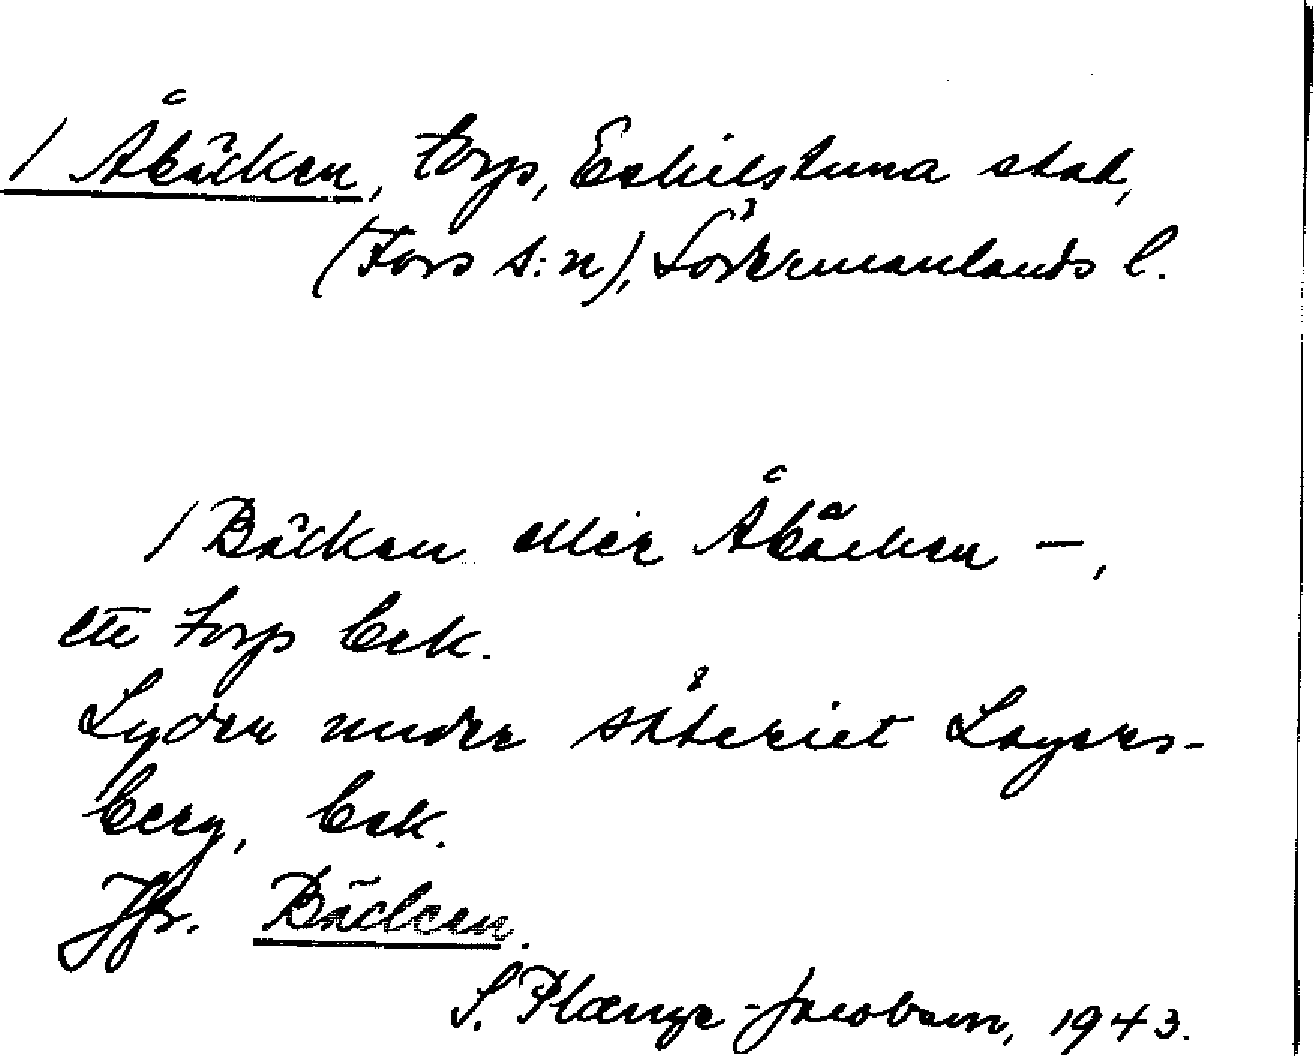 / Åbäcken, torp, Eskilstuna stad,
(Fors s:n), Södermanlands l.
/ Bäcken eller Åbäcken —,
ett torp bek.
Lyder under säteriet Lagers-
berg, bek.
Jfr. Bäcken.
S. Plænge-Jacobson, 1943.